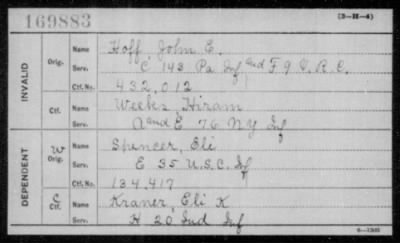 169883
(3-H-4)
INVALID
Orig.
Name Hoff, John E.
Serv. C 148 Pa Inf and F 9 V. R. C.
Ctf. No. 432,012
Ctf.
Name Weekes, Hiram
Serv. A and E 76 NY Inf
DEPENDENT
W
Orig.
Name Spencer, Eli
Serv. E 35 U.S.C. Inf
Ctf. No. 134,417
C
Ctf.
Name Kraner, Eli K
Serv. H 20 Ind Inf